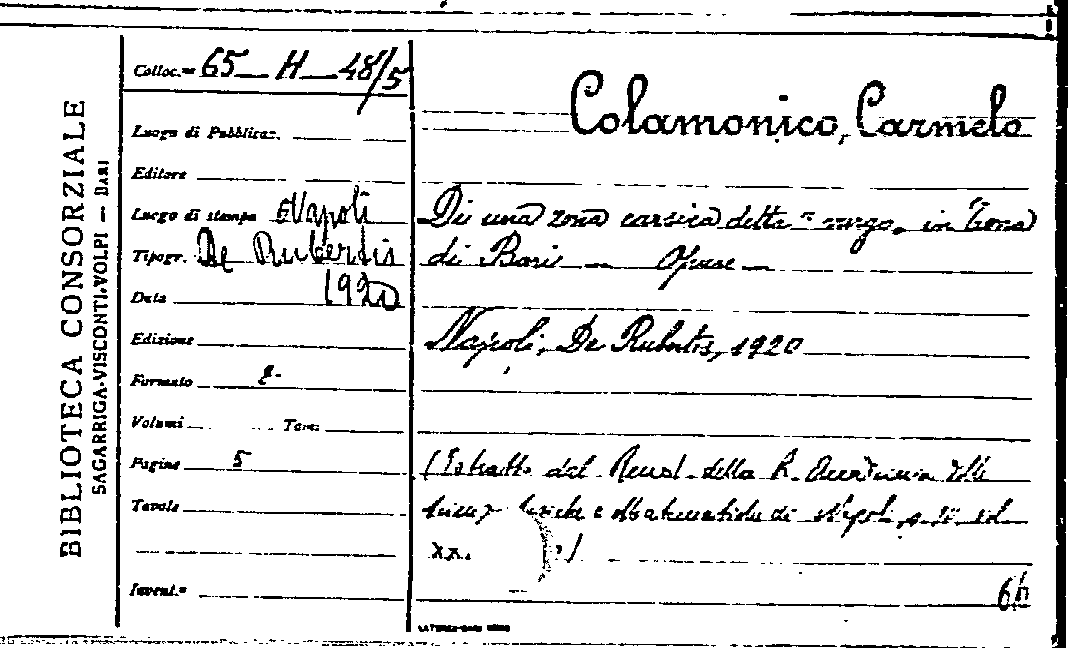 BIBLIOTECA CONSORZIALE
SAGARRIGA-VISCONTI-VOLPI — BARI
Colloc.= 65 H 48/5
Luogo di Pubblicaz.
Editore
Luogo di stampa Napoli
Tipogr. De Rubertis
Data 1920
Edizione
Formato 8-
Volumi Tomi
Pagine 5
Tavole
Invent.=
Colamonico, Carmelo
Di una zona carsica detta in
di Bari — Opusc —
Napoli, De Rubertis, 1920
(Estratto dal Rend. della R.
e Matematiche di Napoli, s.
XX.
66
LATERZA-BARI